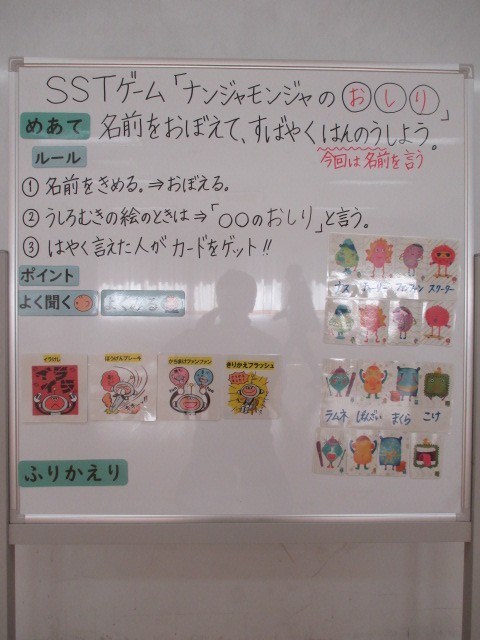 SSTゲーム「ナンジャモンジャの おしり」
めあて 名前をおぼえて、すばやくはんのうしよう。
今回は名前を言う
ルール
① 名前をきめる。⇒おぼえる。
② うしろむきの絵のときは⇒「○○のおしり」と言う。
③ はやく言えた人がカードをゲット!!
ポイント
よく聞く よくみる
ナス スケーター
イラけし ぼうけんブレーキ からまげファンファン きりかえフラッシュ
イライラ
ラムネ ばんざい まくら こけ
ふりかえり